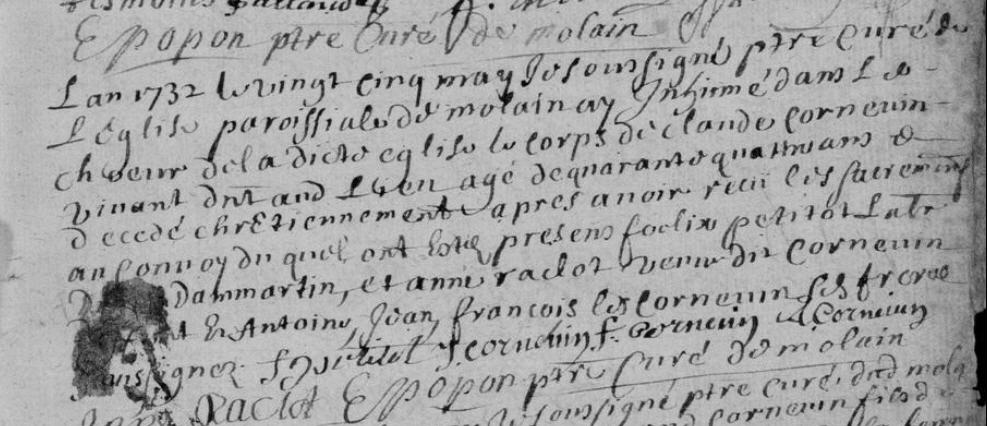 E popon ptre Curé de molain
L an 1732 le vingt cinq may Je soussigné ptre Curé de
L église paroissiale de molain ay Inhumé dans Le
choeur de la dicte eglise le corps de claude cornevin
vivant dnt aud Lieu agé de quarante quattre ans
decedé chretiennement apres avoir recu les sacremens
au Convoy du quel ont Esté presens foelix petitot Labr
Dammartin, et anne raclot veuve dit Cornevin
Et Antoine, Jean, françois les Cornevin ses freres
soussignez petitot J cornevin f. Cornevin a Cornevin
Raclot E popon ptre Curé de molain
Je soussigné ptre Curé dud
Cornevin fils de